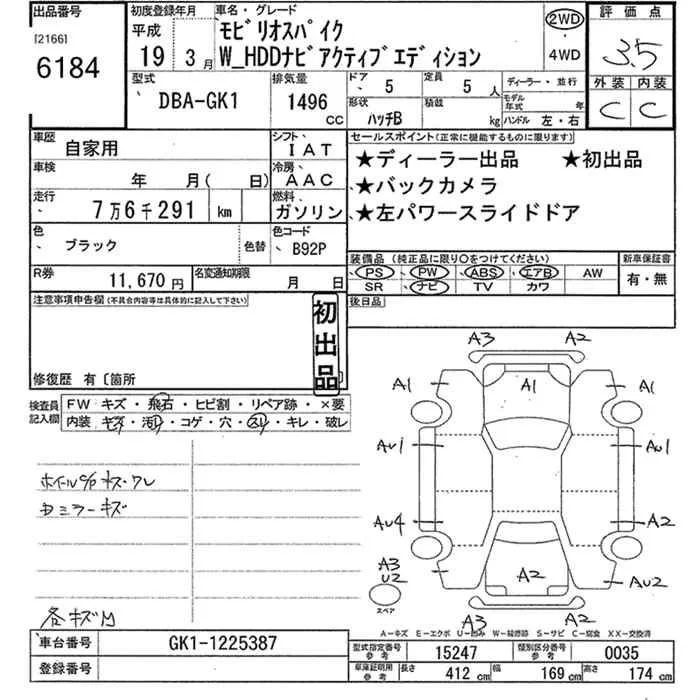 出品番号
[2166]
6184
初度登録年月
平成
19 3月
車名・グレード
モビリオスパイク
W_HDDナビアクティブエディション
2WD
・
4WD
評価点
3.5
外装 内装
C C
型式
DBA-GK1
排気量
1496 CC
ドア
5
定員
5 人
形状
ハッチB
積載
kg
ディーラー・並行
モデル年式 年
ハンドル 左・右
車歴
自家用
シフト
IAT
車検
年 月( 日)
冷房
AAC
走行
7万6千291 km
燃料
ガソリン
色
ブラック
色替
色コード
B92P
R券
11,670円
名変通知期限
月 日
セールスポイント(正常に機能するものに限ります)
★ディーラー出品 ★初出品
★バックカメラ
★左パワースライドドア
装備品(純正品に限り○をつけてください)
PS PW ABS エアB AW
SR ナビ TV カワ
新車保証書
有・無
後日品
注意事項申告欄(不具合内容等は具体的に記入して下さい)
初出品
修復歴 有〔箇所 〕
検査員記入欄
FW キズ・飛石・ヒビ割・リペア跡・×要
内装 キズ・汚レ・コゲ・穴・スレ・キレ・破レ
キズ・ワレ
ミラーキズ
各キズ凹
A3 A2
A1 A1 A1
AU1 AU1
AU4 A2
A3
U2
スペア
A2
AU2
A3 A2
A－キズ E－エクボ U－凹み W－補修跡 S－サビ C－腐食 XX－交換済
車台番号
GK1-1225387
登録番号
型式指定番号 参考
15247
類別区分番号 参考
0035
車庫証明用 参考
長さ 412 cm
幅 169 cm
高さ 174 cm